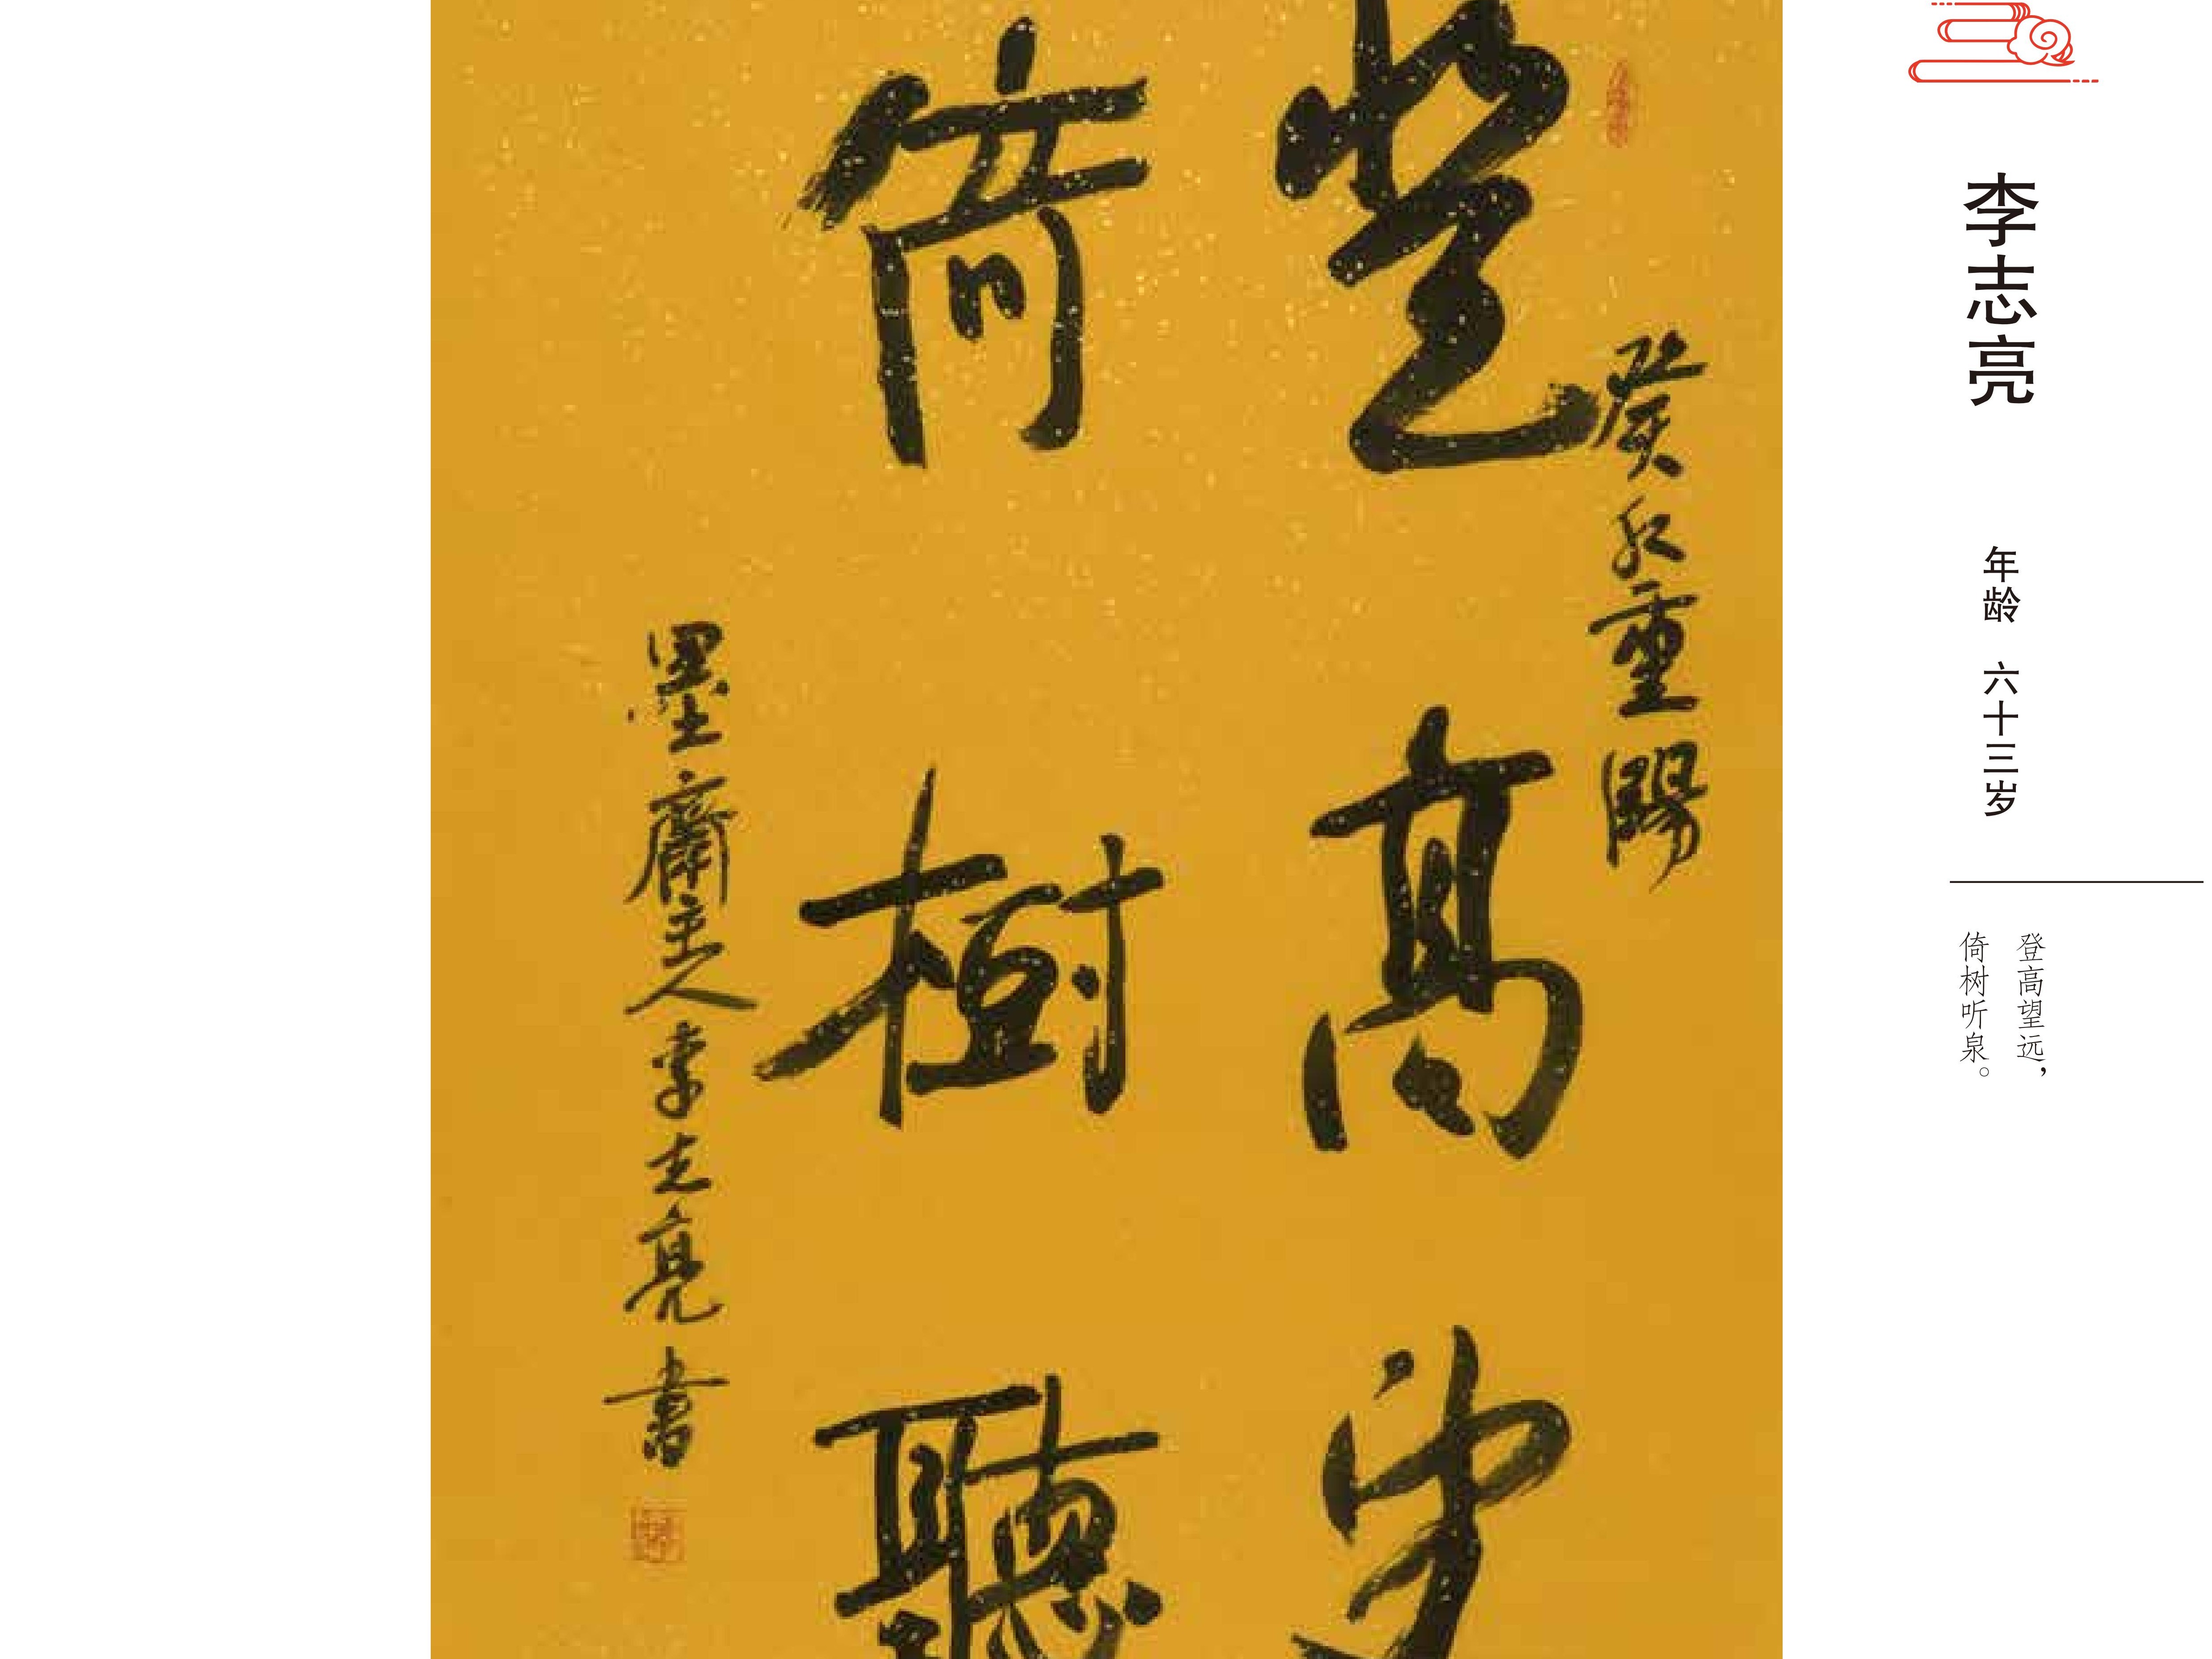 李志亮
年龄 六十三岁
登高望远，
倚树听泉。
癸卯重陽
登高望
倚樹聽
墨齋主人李志亮書